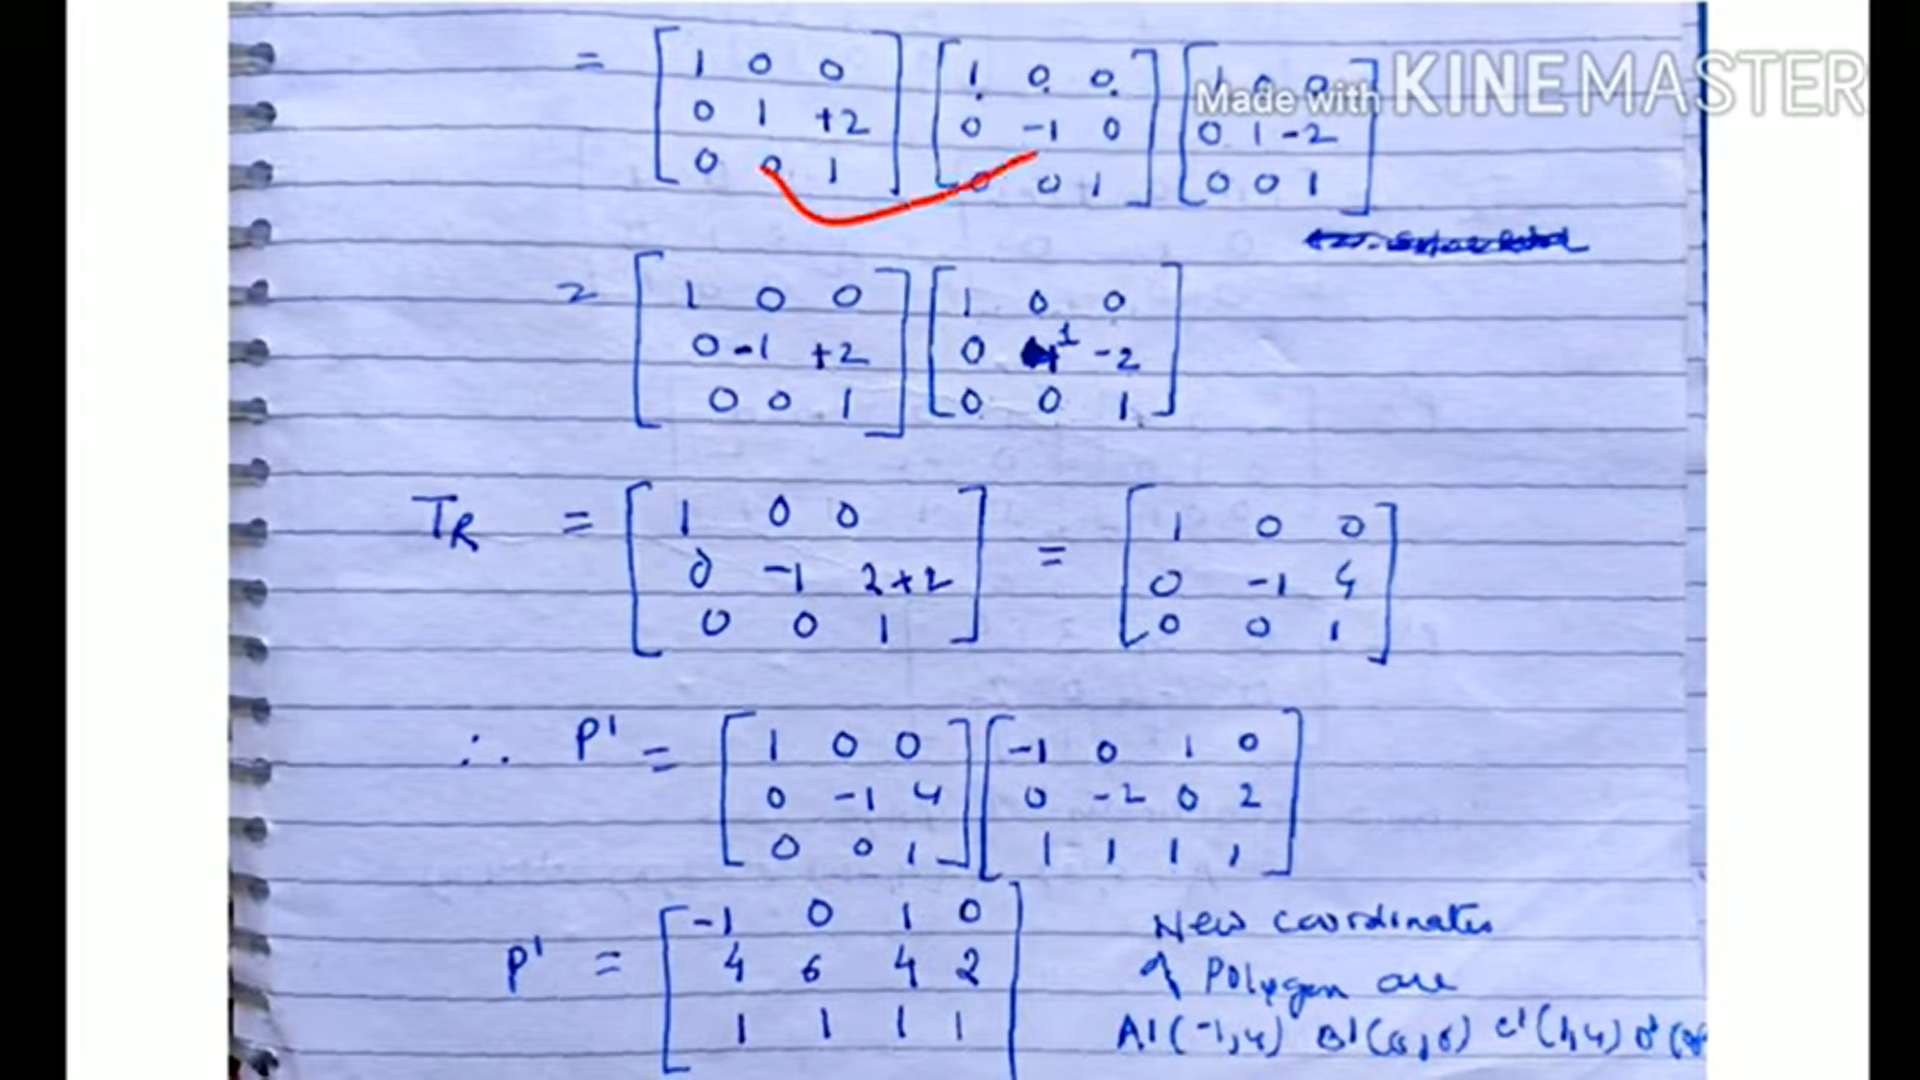 = [ 1 0 0 ] [ 1 0 0 ] [ 1 0 0 ]
[ 0 1 +2 ] [ 0 -1 0 ] [ 0 1 -2 ]
[ 0 0 1 ] [ 0 0 1 ] [ 0 0 1 ]
Made with KINEMASTER
= [ 1 0 0 ] [ 1 0 0 ]
[ 0 -1 +2 ] [ 0 1 -2 ]
[ 0 0 1 ] [ 0 0 1 ]
TR = [ 1 0 0 ] = [ 1 0 0 ]
[ 0 -1 2+2 ] [ 0 -1 4 ]
[ 0 0 1 ] [ 0 0 1 ]
∴ P' = [ 1 0 0 ] [ -1 0 1 0 ]
[ 0 -1 4 ] [ 0 -2 0 2 ]
[ 0 0 1 ] [ 1 1 1 1 ]
P' = [ -1 0 1 0 ]
[ 4 6 4 2 ]
[ 1 1 1 1 ]
New coordinates
of Polygon are
A'(-1,4) B'(0,6) C'(1,4) D'(